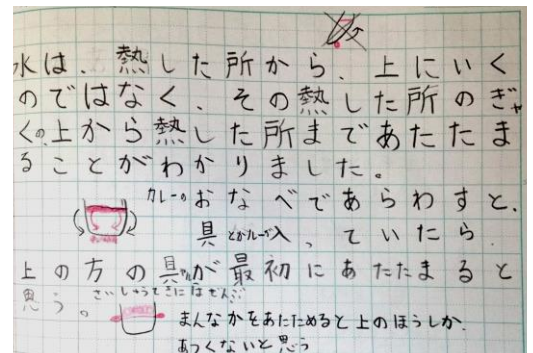 水は、熱した所から、上にいく
のではなく、その熱した所のぎゃ
くの、上から熱した所まであたたま
ることがわかりました。
カレーのおなべであらわすと、
具とかルーが入っていたら
上の方の具が最初にあたたまると
思う。さいしゅうてきにはぜんぶ
まんなかをあたためると上のほうしか
あつくないと思う